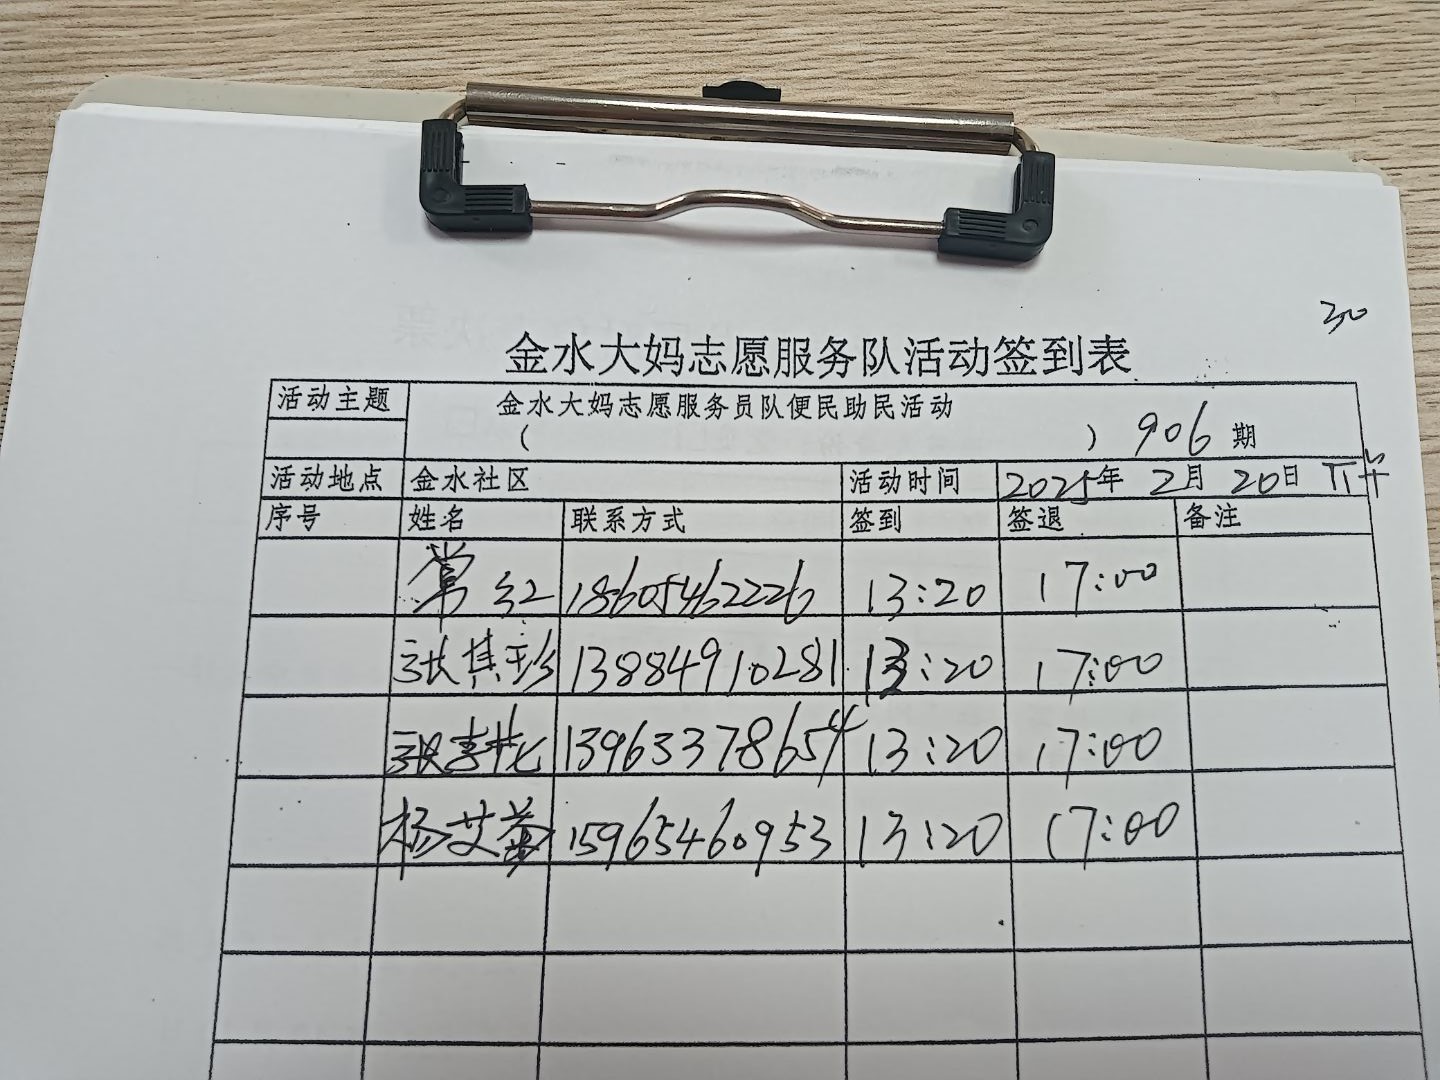 30
金水大妈志愿服务队活动签到表
活动主题 金水大妈志愿服务员队便民助民活动
( ) 906 期
活动地点 金水社区 活动时间 2025年 2月 20日 下午
序号 姓名 联系方式 签到 签退 备注
常红 18605462226 13:20 17:00
张其珍 13884910281 13:20 17:00
13963378654 13:20 17:00
杨艾 15965460953 13:20 17:00